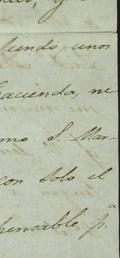 fundo unos
hacienda, ne
mo S. Mar
con solo el
pensable p.ª